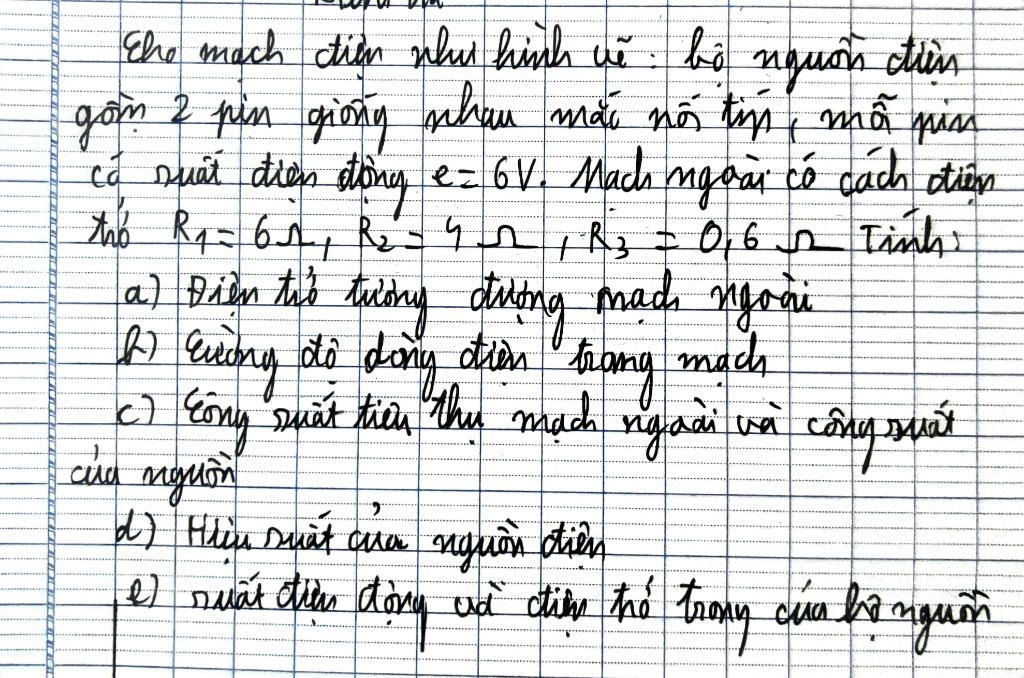 Cho mạch điện như hình vẽ : bộ nguồn điện
gồm 2 pin giống nhau mắc nối tiếp, mỗi pin
có suất điện động e = 6V. Mạch ngoài có cách điện
trở R1 = 6 Ω, R2 = 4 Ω, R3 = 0,6 Ω Tính:
a) Điện trở tương đương mạch ngoài
b) Cường độ dòng điện trong mạch
c) Công suất tiêu thụ mạch ngoài và công suất
của nguồn
d) Hiệu suất của nguồn điện
e) suất điện động và điện trở trong của bộ nguồn